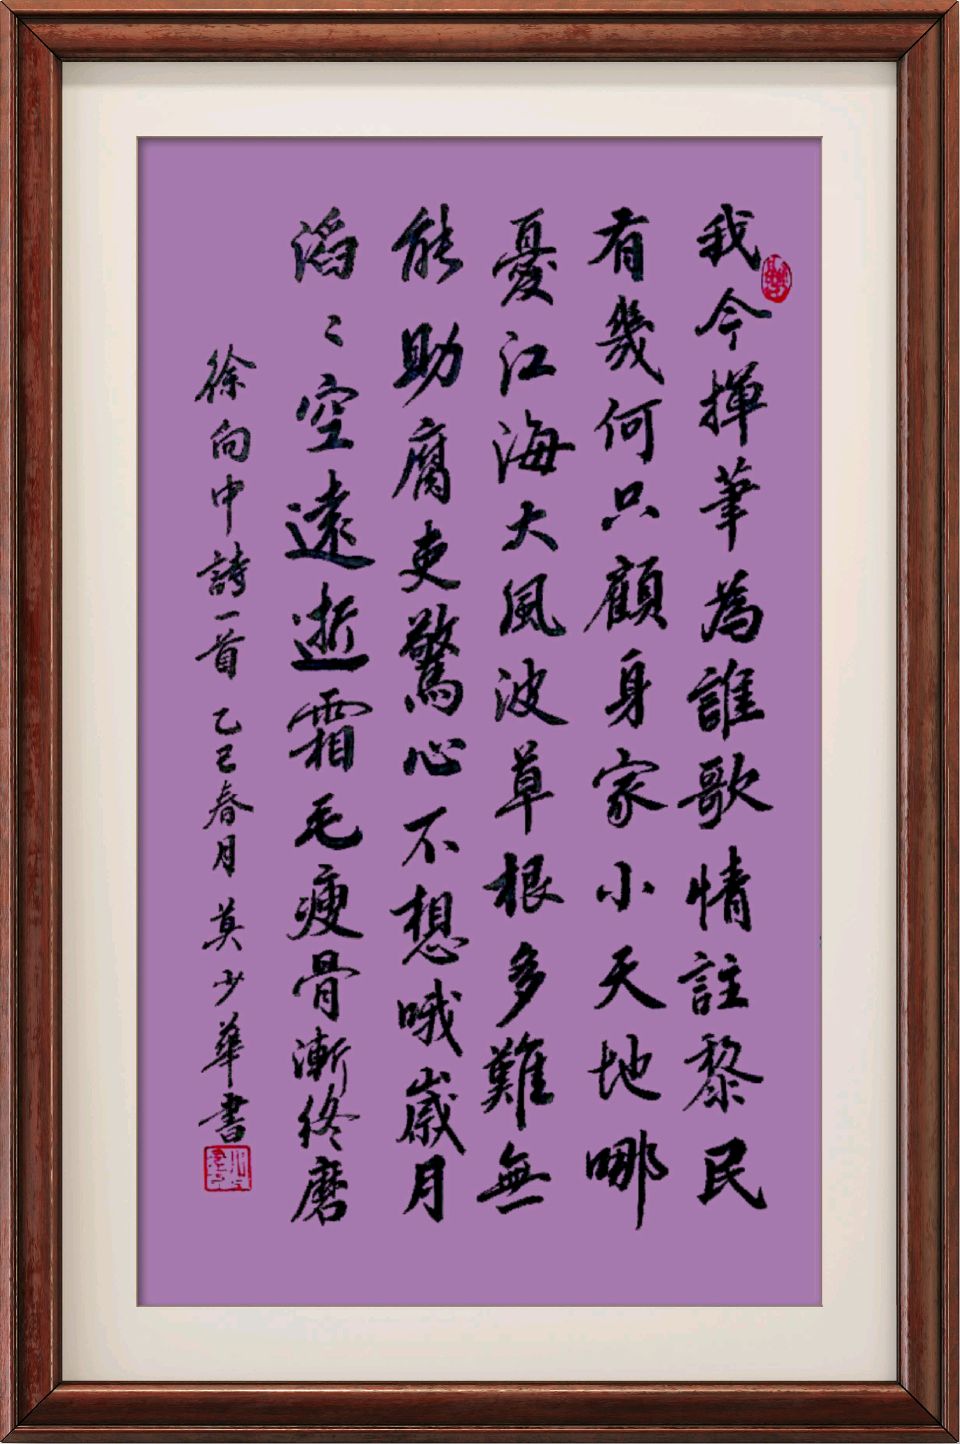 我今揮筆為誰歌情註黎民
有幾何只顧身家小天地哪
憂江海大風波草根多難無
能助腐吏驚心不想哦歲月
滔〻空遠逝霜毛瘦骨漸終磨
徐向中詩一首 乙巳春月 莫少華書